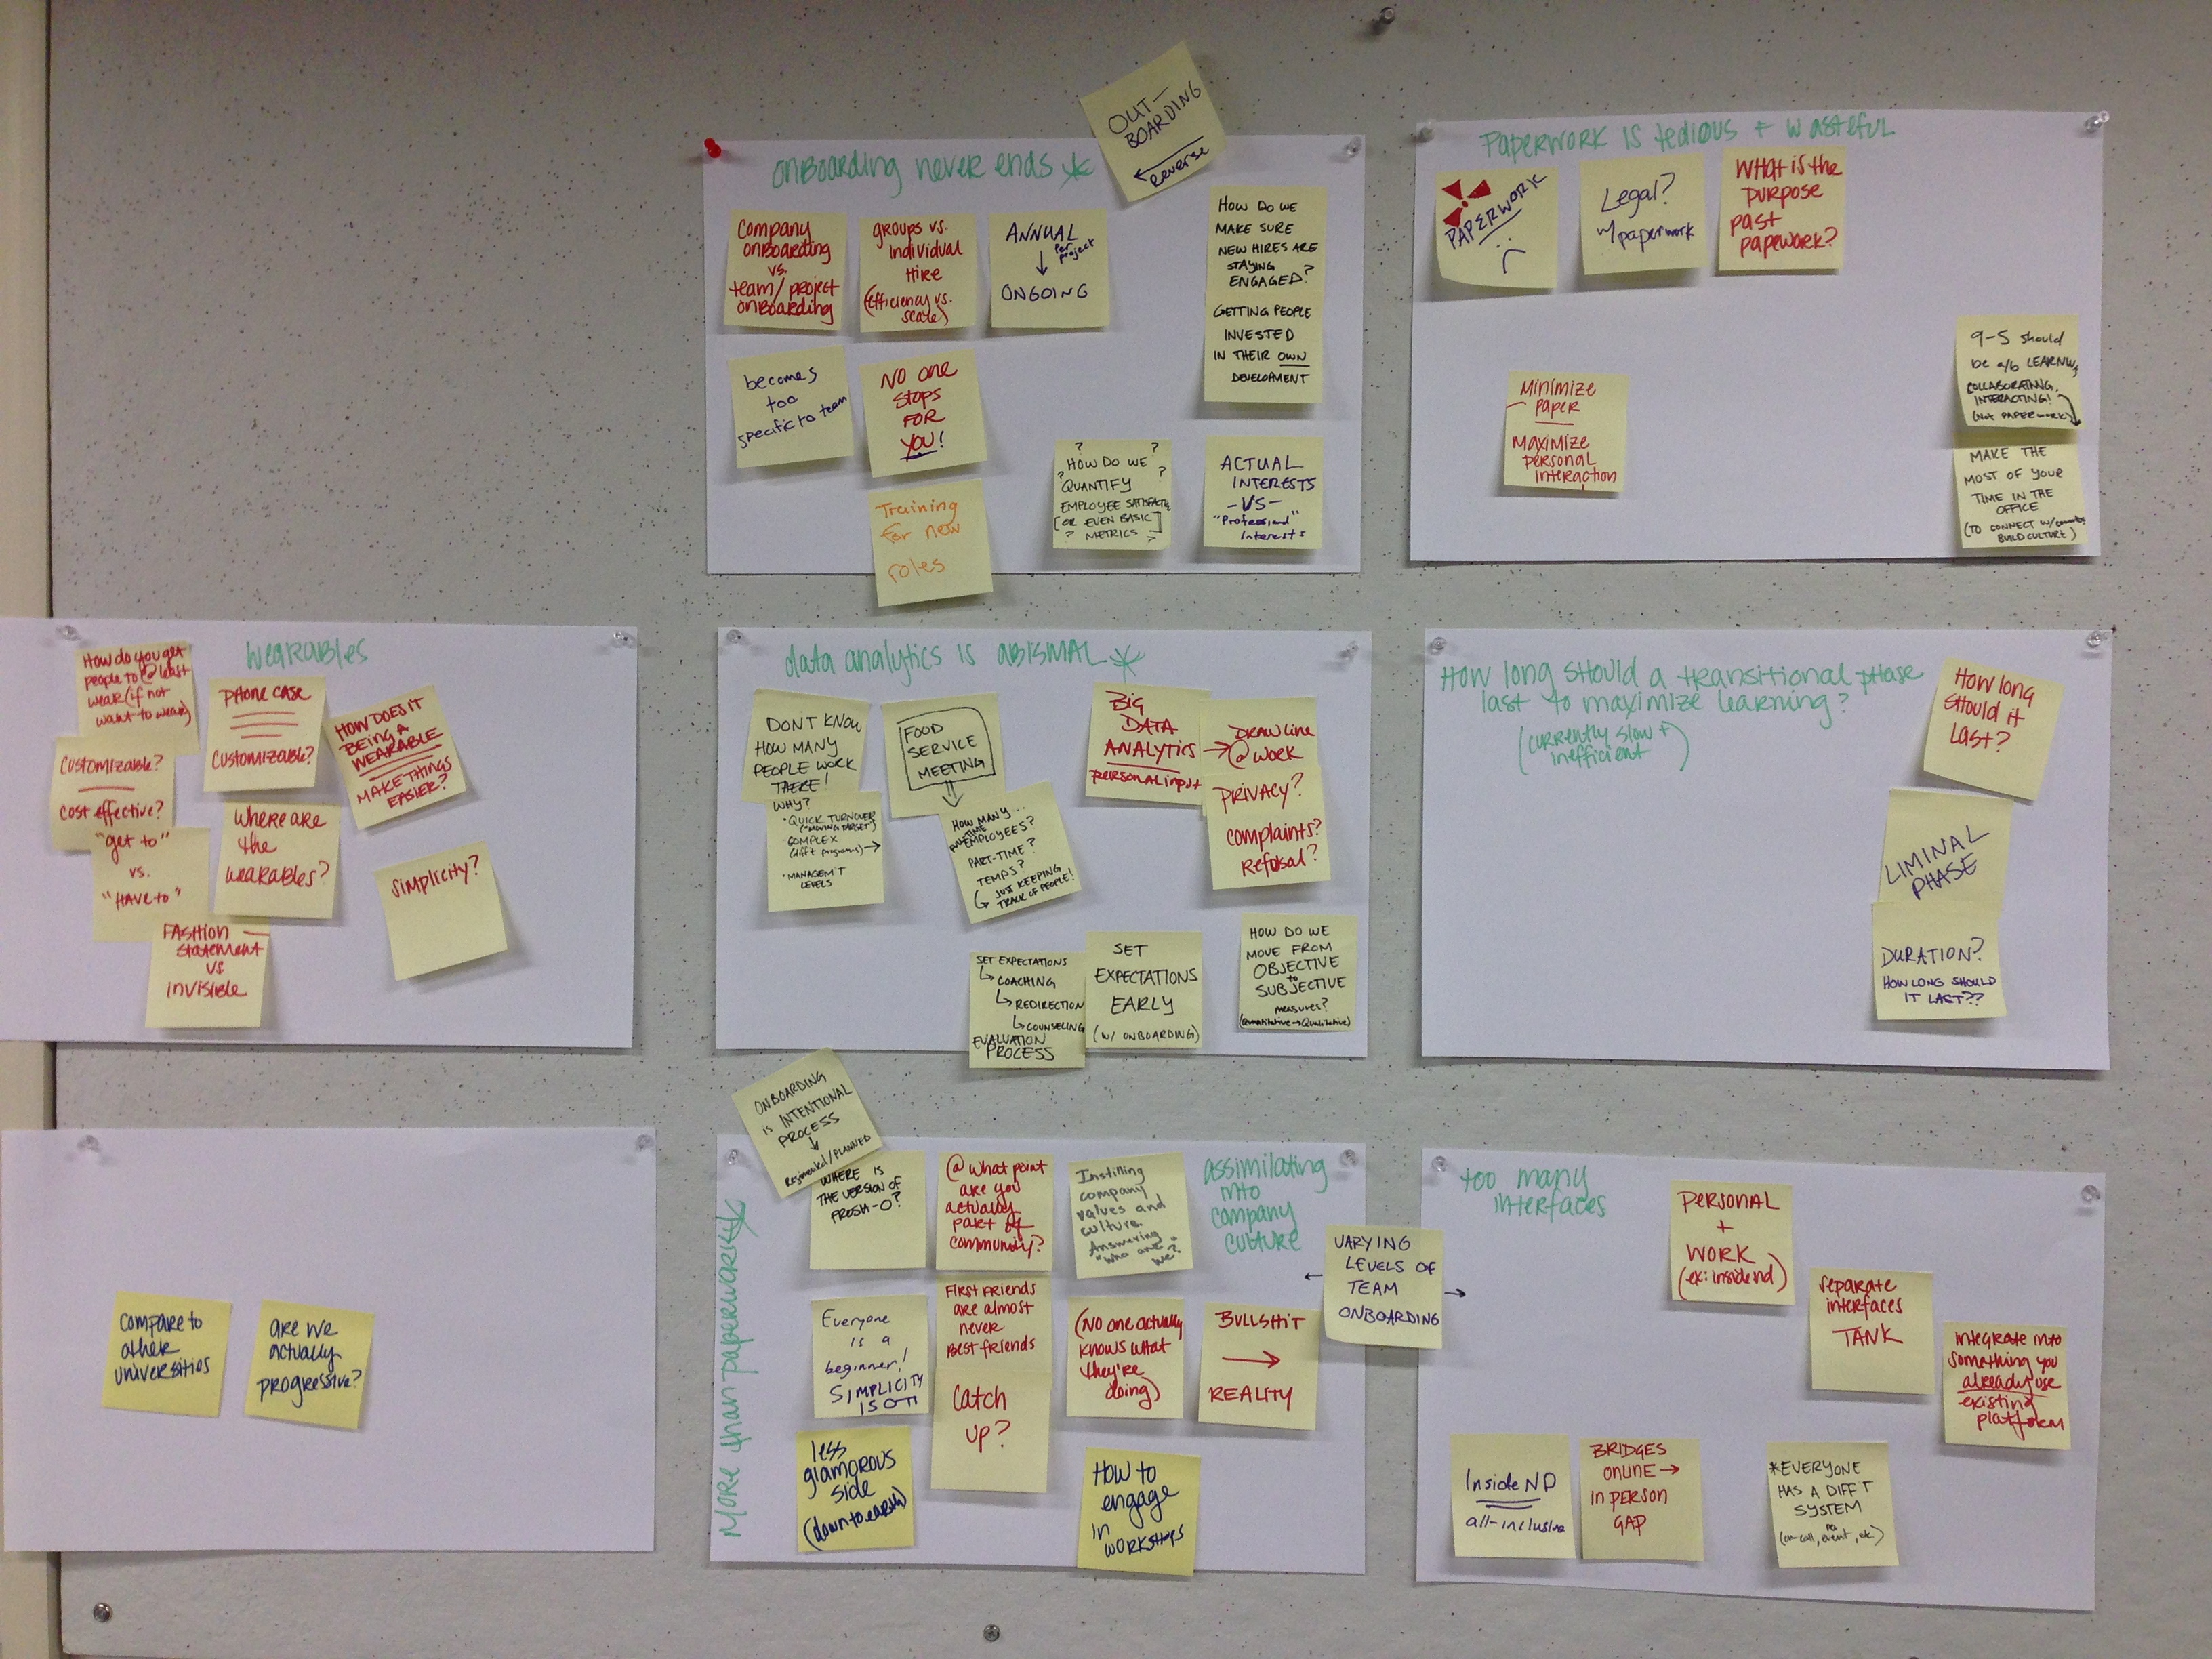 OUT-
BOARDING
Reverse
onboarding never ends
Company
onboarding
vs.
team/project
onboarding
groups vs.
individual
Hire
(Efficiency vs.
scale)
ANNUAL
per
project
ONGOING
HOW DO WE
MAKE SURE
NEW HIRES ARE
STAYING
ENGAGED?
GETTING PEOPLE
INVESTED
IN THEIR OWN
DEVELOPMENT
becomes
too
specific to team
NO ONE
stops
FOR
YOU!
Training
for new
roles
? ?
HOW DO WE
? ?
QUANTIFY
EMPLOYEE SATISFACTN
[OR EVEN BASIC]
? METRICS ?
ACTUAL
INTERESTS
-VS-
"Professional"
Interests
Paperwork is tedious + wasteful
PAPERWORK
Legal?
w/ paperwork
What is the
purpose
past
papework?
Minimize
paper
Maximize
personal
interaction
9-5 should
be a/b LEARNING,
COLLABORATING,
INTERACTING!
(NOT PAPERWORK)
MAKE THE
MOST OF YOUR
TIME IN THE
OFFICE
(TO CONNECT w/
BUILD CULTURE)
Wearables
How do you get
people to @ least
wear (if not
want to wear)
phone case
customizable?
HOW DOES IT
BEING A
WEARABLE
MAKE THINGS
EASIER?
customizable?
cost effective?
"get to"
vs.
"Have to"
Where are
the
wearables?
Simplicity?
FASHION
statement
vs
invisible
data analytics is abismal
DONT KNOW
HOW MANY
PEOPLE WORK
THERE!
WHY?
• QUICK TURNOVER
("MOVING TARGET")
COMPLEX
(diff't programs) →
• MANAGEM'T
LEVELS
FOOD
SERVICE
MEETING
HOW MANY...
TIME
EMPLOYEES?
PART-TIME?
TEMPS?
JUST KEEPING
TRACK OF PEOPLE!
BIG
DATA
ANALYTICS →
personal input
DRAW LINE
@ work
PRIVACY?
Complaints?
Refusal?
SET EXPECTATIONS
COACHING
REDIRECTION
COUNSELING
EVALUATION
PROCESS
SET
EXPECTATIONS
EARLY
(w/ ONBOARDING)
HOW DO WE
MOVE FROM
OBJECTIVE
to
SUBJECTIVE
measures?
(Quantitative → Qualitative)
How long should a transitional phase
last to maximize learning?
(currently slow +
inefficient)
How long
should it
last?
LIMINAL
PHASE
DURATION?
HOW LONG SHOULD
IT LAST??
compare to
other
universities
are we
actually
progressive?
ONBOARDING
is INTENTIONAL
PROCESS
Regimented/PLANNED
WHERE IS
THE VERSION OF
FROSH-O?
More than paperwork
@ what point
are you
actually
part of
community?
Instilling
company
values and
culture.
Answering
"Who are
we?"
assimilating
into
company
culture
Everyone
is a
beginner!
SIMPLICITY
First friends
are almost
never
Best friends
Catch
up?
(No one actually
knows what
they're
doing)
BULLSHIT
→
REALITY
VARYING
LEVELS OF
TEAM
ONBOARDING
less
glamorous
side
(down to earth)
How to
engage
in
workshops
too many
interfaces
personal
+
WORK
(ex: insidend)
separate
interfaces
TANK
integrate into
something you
already use
existing
platform
InsideND
all-inclusive
BRIDGES
ONLINE →
IN PERSON
GAP
*EVERYONE
HAS A DIFF'T
SYSTEM
(on-call, event, etc)